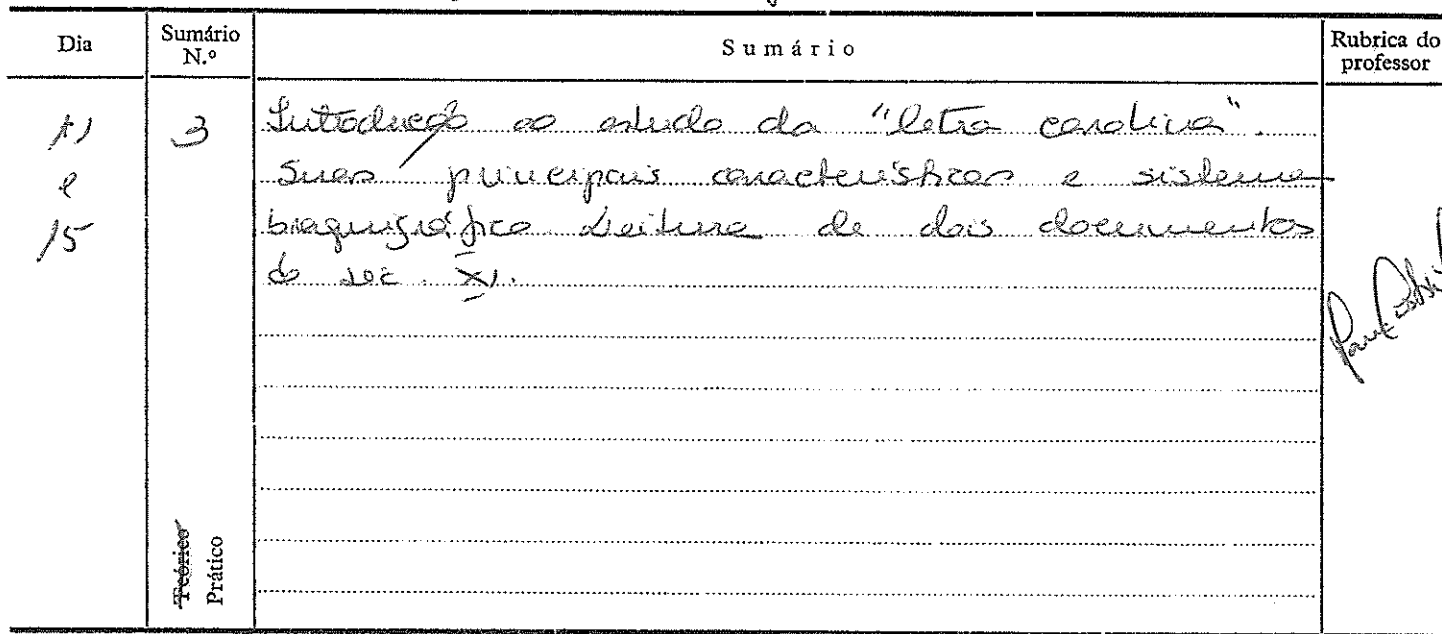 Dia
Sumário N.º
Sumário
Rubrica do professor
11 e 15
3
Introdução ao estudo da "letra carolina".
Suas principais características e sistema
braquigráfico. Leitura de dois documentos
do séc. XI.
Teórico
Prático